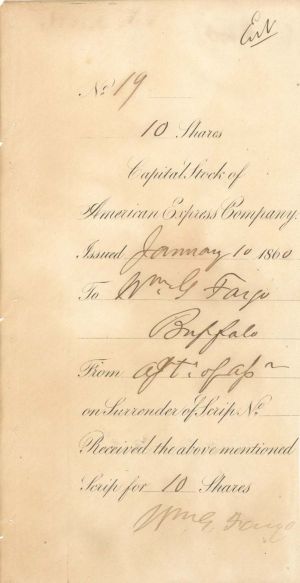 No. 19
10 Shares
Capital Stock of
American Express Company.
Issued January 10 1860
To Wm G Fargo
Buffalo
From
on Surrender of Scrip No.
Received the above mentioned
Scrip for 10 Shares
Wm G. Fargo